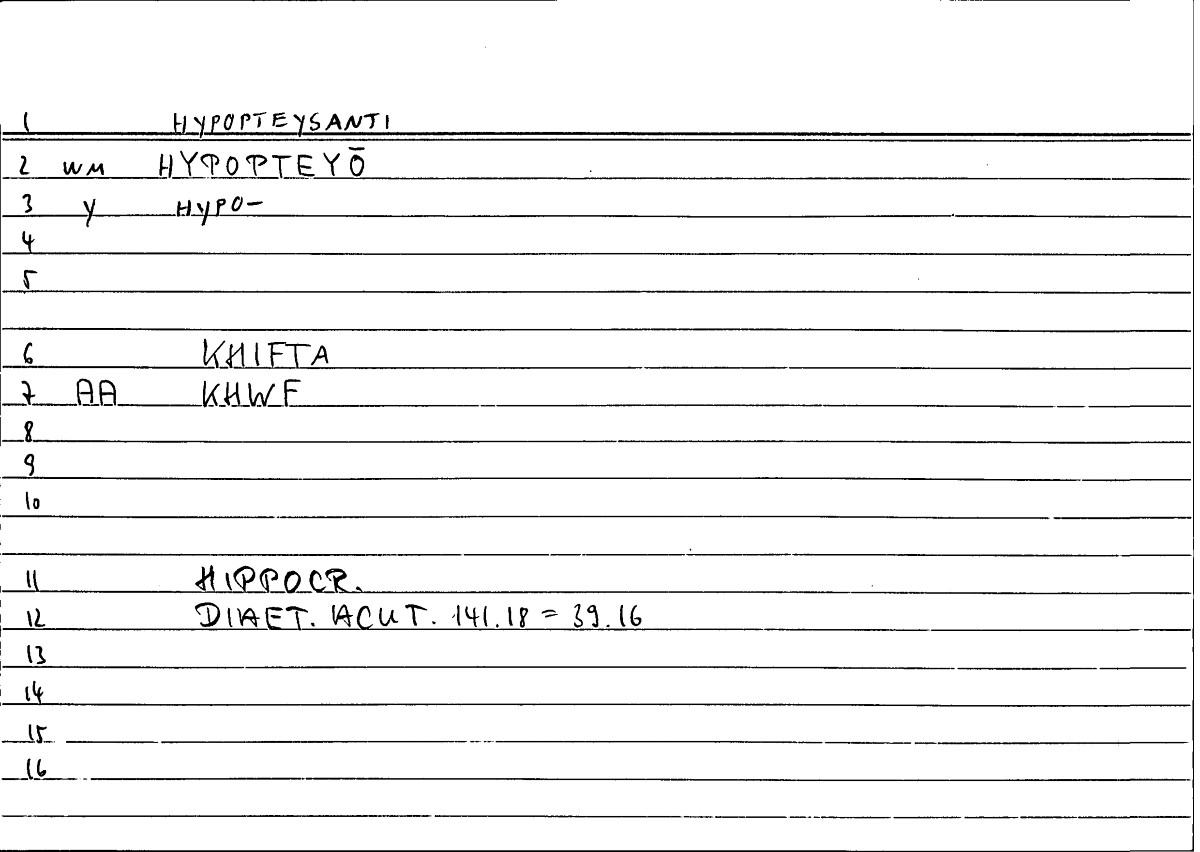 1 HYPOPTEYSANTI
2 WM HYPOPTEYŌ
3 Y HYPO-
4
5
6 KHIFTA
7 AA KHWF
8
9
10
11 HIPPOCR.
12 DIAET. ACUT. 141.18 = 39.16
13
14
15
16